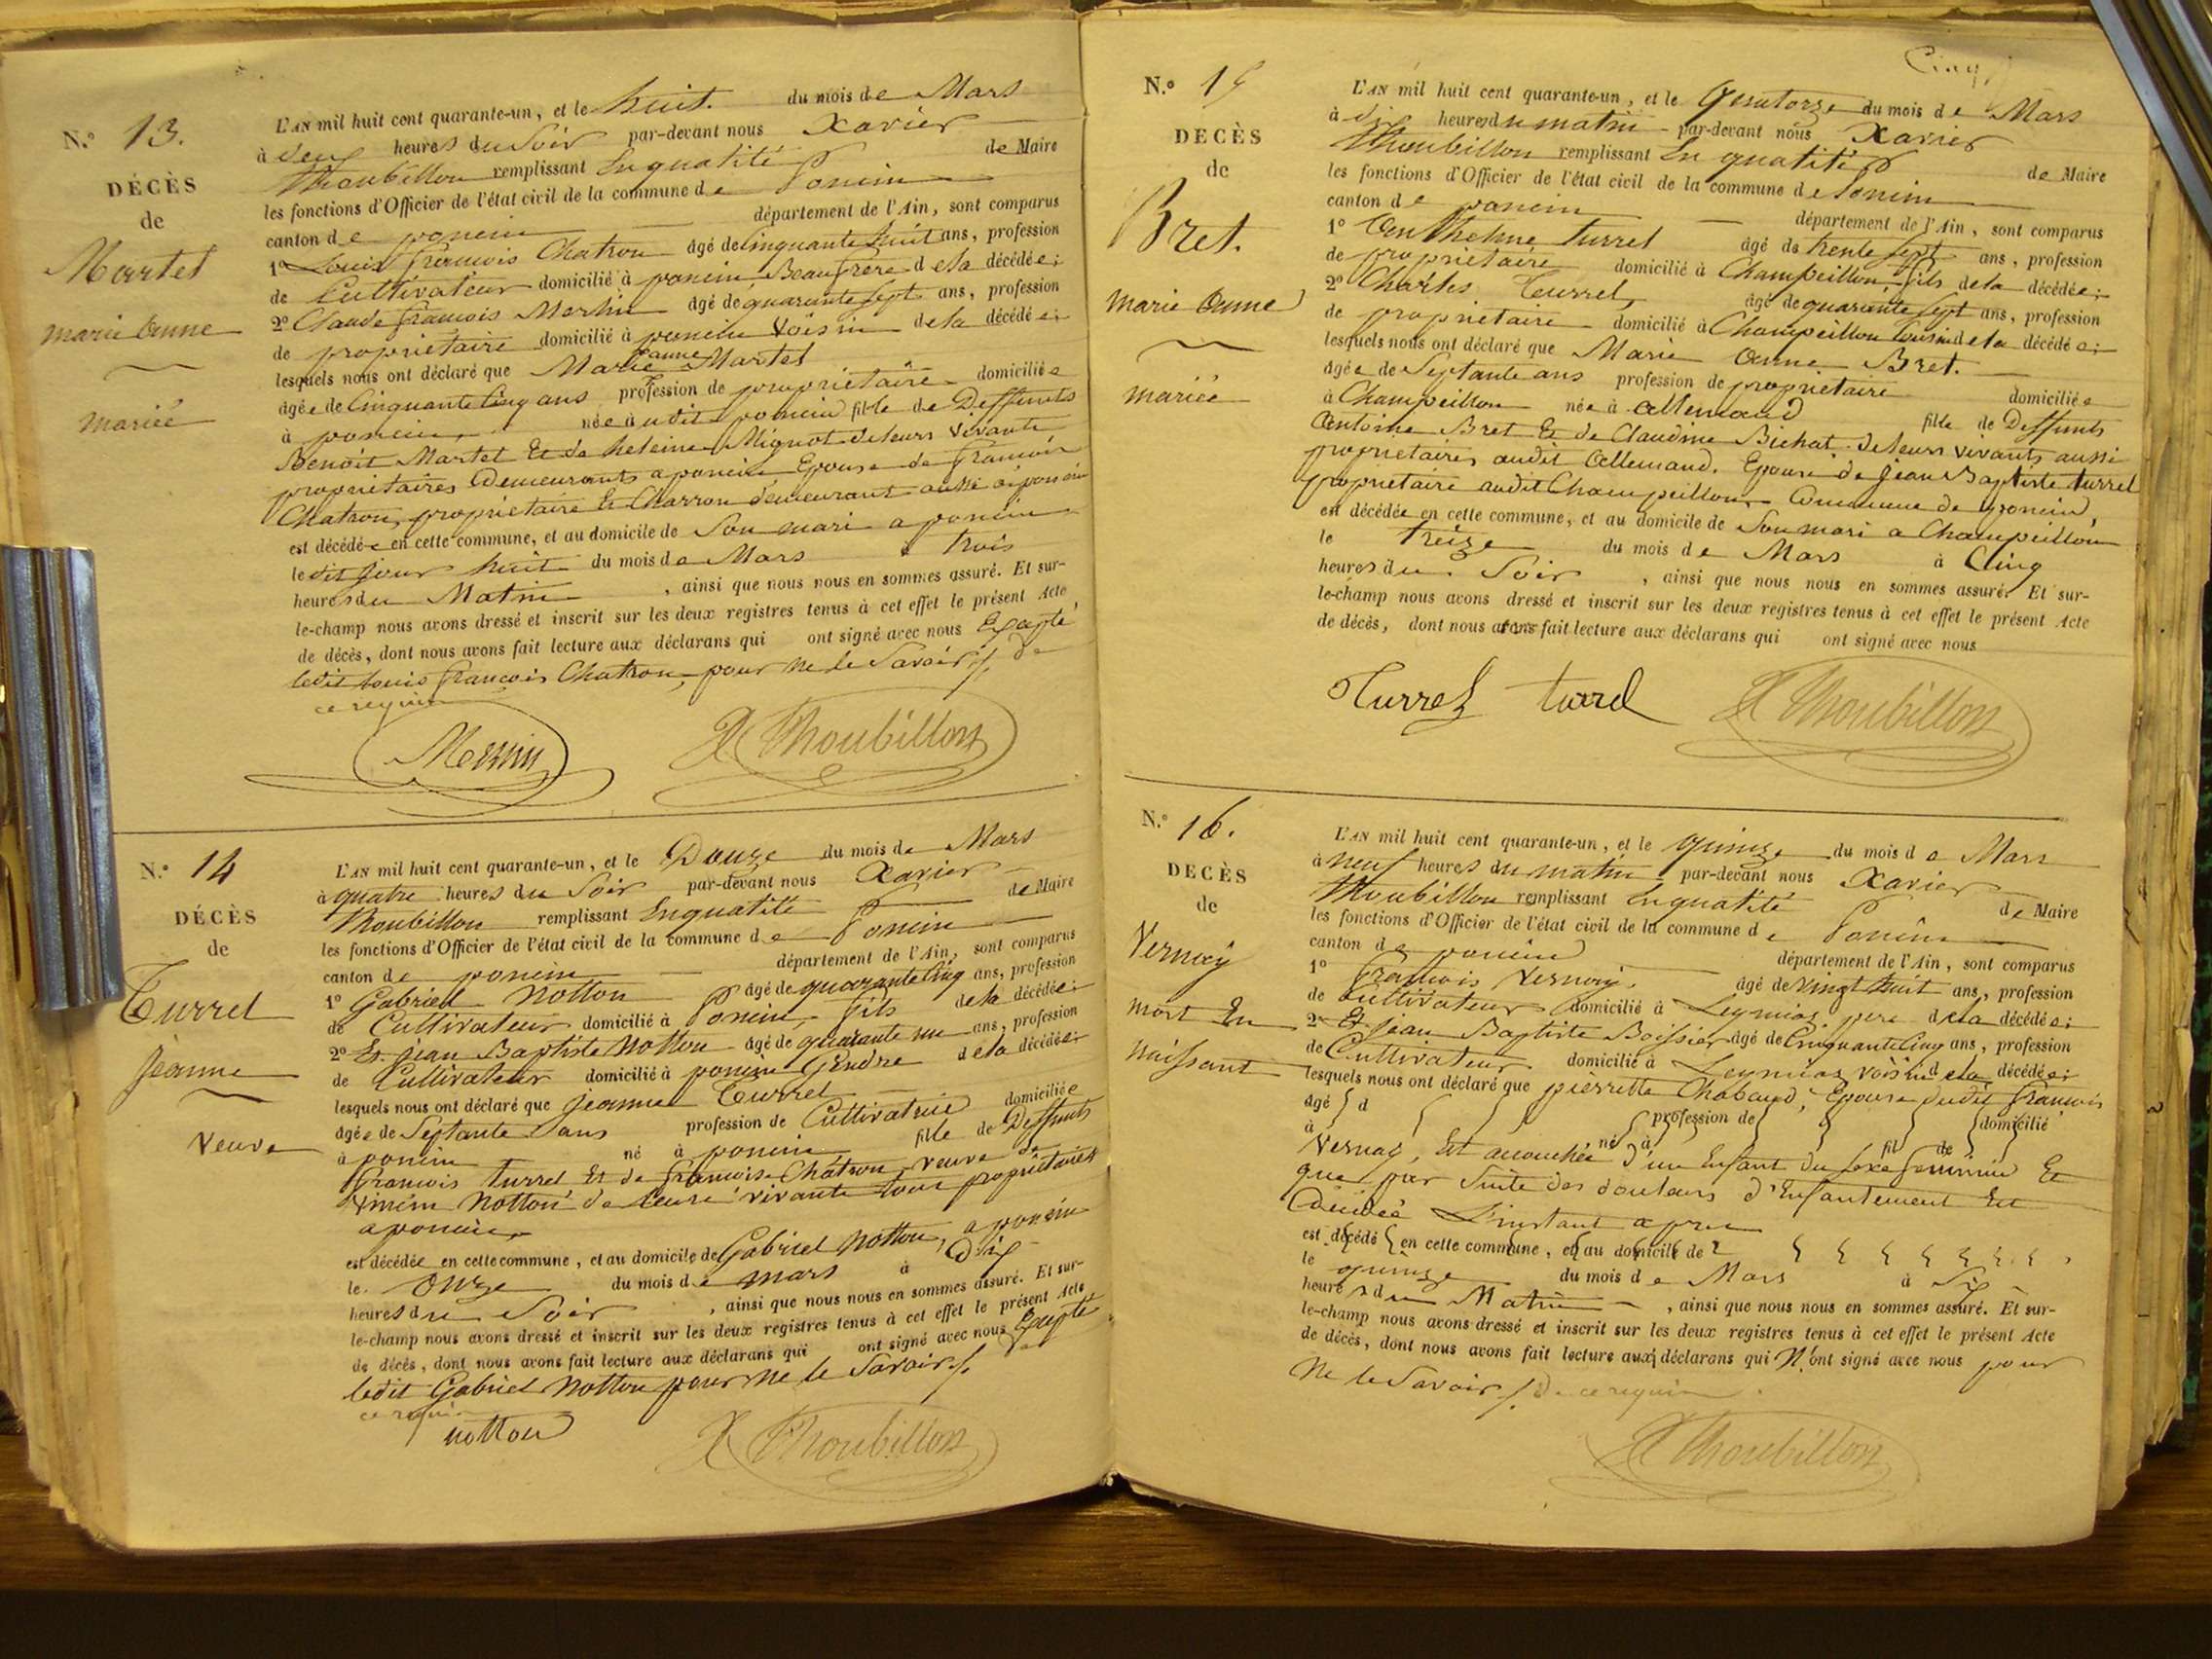 N.° 13.
DÉCÈS
de
Martel
marie Anne
mariée
L'AN mil huit cent quarante-un, et le huit. du mois de Mars
à deux heures du Soir par-devant nous Xavier
Thoubillon remplissant En qualité de Maire
les fonctions d'Officier de l'état civil de la commune de Poncin
canton de poncin département de l'Ain, sont comparus
1° Louis françois Chatron âgé de Cinquante huit ans, profession
de Cultivateur domicilié à poncin Beaufrère de la décédée;
2° Claude françois Merlin âgé de quarante Sept ans, profession
de propriétaire domicilié à poncin Voisin de la décédée;
lesquels nous ont déclaré que Marie anne Martel
âgée de Cinquante Cinq ans profession de propriétaire domiciliée
à poncin, née audit poncin fille de Deffunts
Benoit Martel Et de heleine Mignot de leurs vivants
propriétaires Demeurants a poncin, Epouse de françois
Chatron, propriétaire Et Charron demeurant aussi à poncin
est décédée en cette commune, et au domicile de Son mari a poncin
le dit jour huit du mois de Mars à trois
heures du Matin , ainsi que nous nous en sommes assuré. Et sur-
le-champ nous avons dressé et inscrit sur les deux registres tenus à cet effet le présent Acte
de décès, dont nous avons fait lecture aux déclarans qui ont signé avec nous Excepté
ledit Louis françois Chatron, pour ne le Savoir /. de
ce requis
X Thoubillon
N.° 14
DÉCÈS
de
Turrel
Jeanne
Veuve
L'AN mil huit cent quarante-un, et le Douze du mois de Mars
à quatre heures du Soir par-devant nous Xavier
Thoubillon remplissant En qualité de Maire
les fonctions d'Officier de l'état civil de la commune de Poncin
canton de poncin département de l'Ain, sont comparus
1° Gabriel Notton âgé de quarante Cinq ans, profession
de Cultivateur domicilié à Poncin, fils de la décédée;
2° Et jean Baptiste Notton âgé de quarante un ans, profession
de Cultivateur domicilié à poncin Gendre de la décédée;
lesquels nous ont déclaré que jeanne Turrel
âgée de Septante ans profession de Cultivatrice domiciliée
à poncin né à poncin fille de Deffunts
françois turrel Et de françoise Chatron, veuve de
Notton de leurs vivants tous propriétaires
a poncin,
est décédée en cette commune, et au domicile de Gabriel Notton, a poncin
le Onze du mois de mars à Dix
heures du Soir , ainsi que nous nous en sommes assuré. Et sur-
le-champ nous avons dressé et inscrit sur les deux registres tenus à cet effet le présent Acte
de décès, dont nous avons fait lecture aux déclarans qui ont signé avec nous Excepté
ledit Gabriel Notton pour ne le Savoir /. de
ce requis
notton
X Thoubillon
Cinq
N.° 15
DÉCÈS
de
Bret.
marie Anne
mariée
L'AN mil huit cent quarante-un, et le Quatorze du mois de Mars
à dix heures du matin par-devant nous Xavier
Thoubillon remplissant En qualité de Maire
les fonctions d'Officier de l'état civil de la commune de Poncin
canton de poncin département de l'Ain, sont comparus
1° Anthelme turrel âgé de trente Sept ans, profession
de propriétaire domicilié à Champeillon, fils de la décédée;
2° Charles Turrel, âgé de quarante Sept ans, profession
de propriétaire domicilié à Champeillon Cousin de la décédée;
lesquels nous ont déclaré que Marie Anne Bret.
âgée de Septante ans profession de propriétaire domiciliée
à Champeillon née à Allemand fille de Deffunts
Antoine Bret Et de Claudine Bichat, de leurs vivants aussi
propriétaires audit Allemand. Epouse de jean Baptiste turrel
propriétaire audit Champeillon, Commune de poncin,
est décédée en cette commune, et au domicile de Son mari a Champeillon
le treize du mois de Mars à Cinq
heures du Soir , ainsi que nous nous en sommes assuré. Et sur-
le-champ nous avons dressé et inscrit sur les deux registres tenus à cet effet le présent Acte
de décès, dont nous avons fait lecture aux déclarans qui ont signé avec nous
Turrel turel X Thoubillon
N.° 16.
DÉCÈS
de
Vernay
mort En
naissant
L'AN mil huit cent quarante-un, et le quinze du mois de Mars
à neuf heures du matin par-devant nous Xavier
Thoubillon remplissant En qualité de Maire
les fonctions d'Officier de l'état civil de la commune de Poncin
canton de poncin département de l'Ain, sont comparus
1° françois Vernay, âgé de Vingt huit ans, profession
de Cultivateur domicilié à Leymiat, père de la décédée;
2° Et jean Baptiste Boissier âgé de Cinquante Cinq ans, profession
de Cultivateur domicilié à Leymiat voisin de la décédée;
lesquels nous ont déclaré que pierrette Chabaud, Epouse dudit françois
âgé d profession de domicilié
à né à fil de
Vernay, Est accouchée d'un Enfant du Sexe feminin Et
que par Suite des douleurs d'Enfantement Est
Décédée L'instant apres
est décédé en cette commune, et au domicile de
le quinze du mois de Mars à Six
heures du Matin , ainsi que nous nous en sommes assuré. Et sur-
le-champ nous avons dressé et inscrit sur les deux registres tenus à cet effet le présent Acte
de décès, dont nous avons fait lecture aux déclarans qui N'ont signé avec nous pour
Ne le Savoir /. De ce requis
X Thoubillon